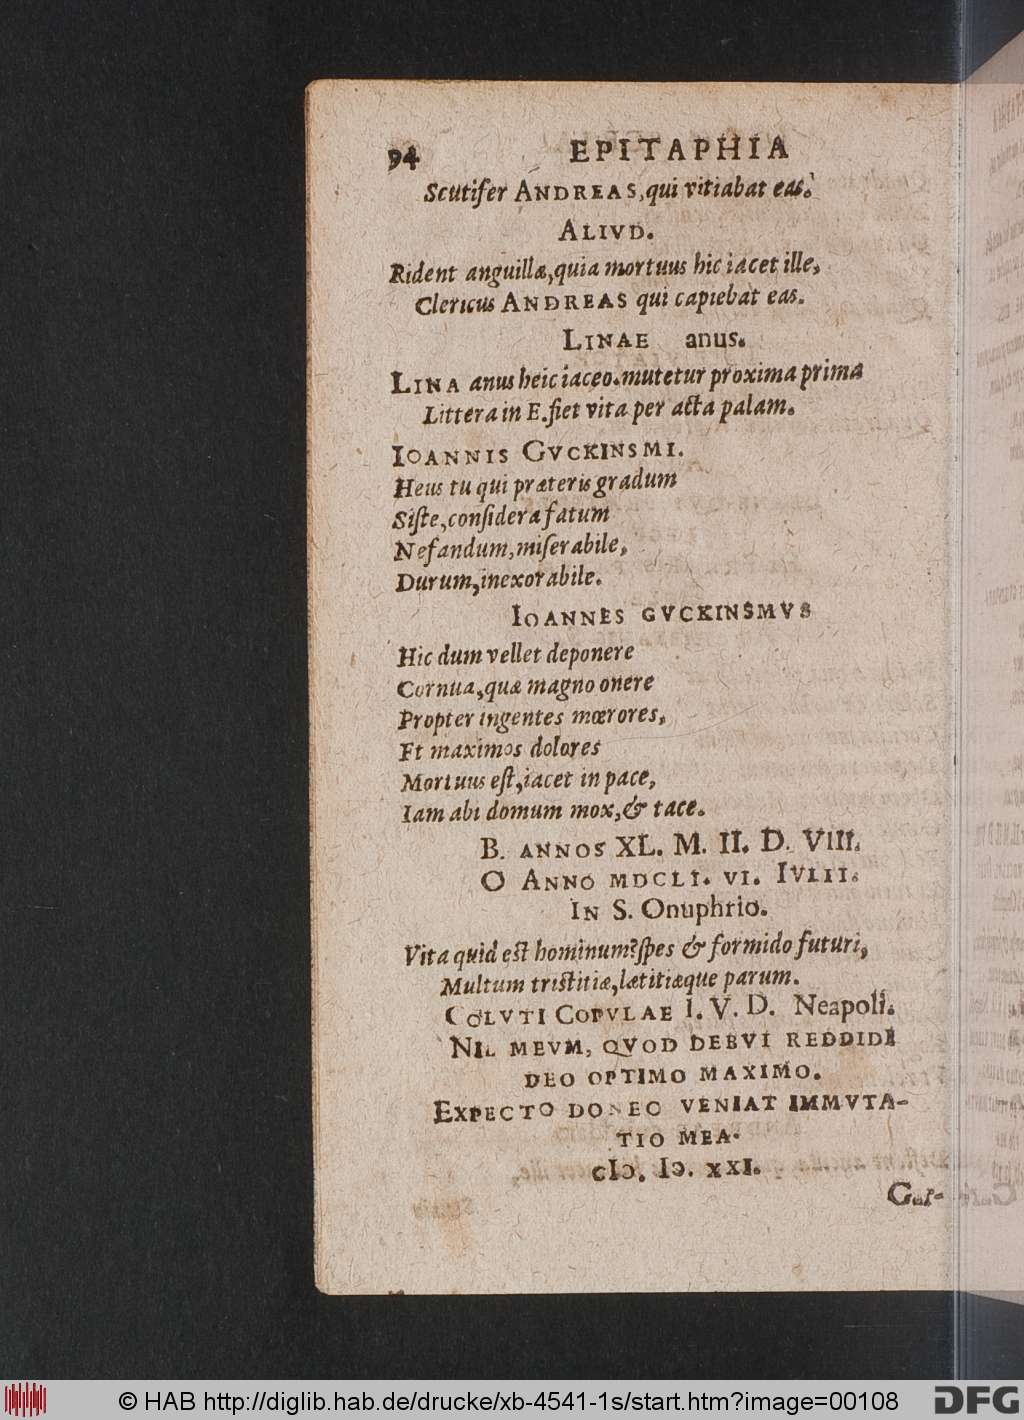 94 EPITAPHIA
Scutifer ANDREAS, qui vitiabat eas.
ALIVD.
Rident anguillæ, quia mortuus hic iacet ille,
Clericus ANDREAS qui capiebat eas.
LINAE anus.
LINA anus heic iaceo. mutetur proxima prima
Littera in E. fiet vita per acta palam.
IOANNIS GVCKINSMI.
Heus tu qui præteris gradum
Siſte, conſidera fatum
Nefandum, miſerabile,
Durum, inexorabile.
IOANNES GVCKINSMVS
Hic dum vellet deponere
Cornua, quæ magno onere
Propter ingentes mœrores,
Et maximos dolores
Mortuus eſt, iacet in pace,
Iam abi domum mox, & tace.
B. ANNOS XL. M. II. D. VIII.
O ANNO MDCLI. VI. IVLII.
IN S. Onuphrio.
Vita quid eſt hominum? ſpes & formido futuri,
Multum triſtitiæ, lætitiæque parum.
COLVTI COPVLAE I. V. D. Neapoli.
NIL MEVM, QVOD DEBVI REDDIDI
DEO OPTIMO MAXIMO.
EXPECTO DONEC VENIAT IMMVTA-
TIO MEA.
cIɔ. Iɔ. XXI.
© HAB http://diglib.hab.de/drucke/xb-4541-1s/start.htm?image=00108
DFG